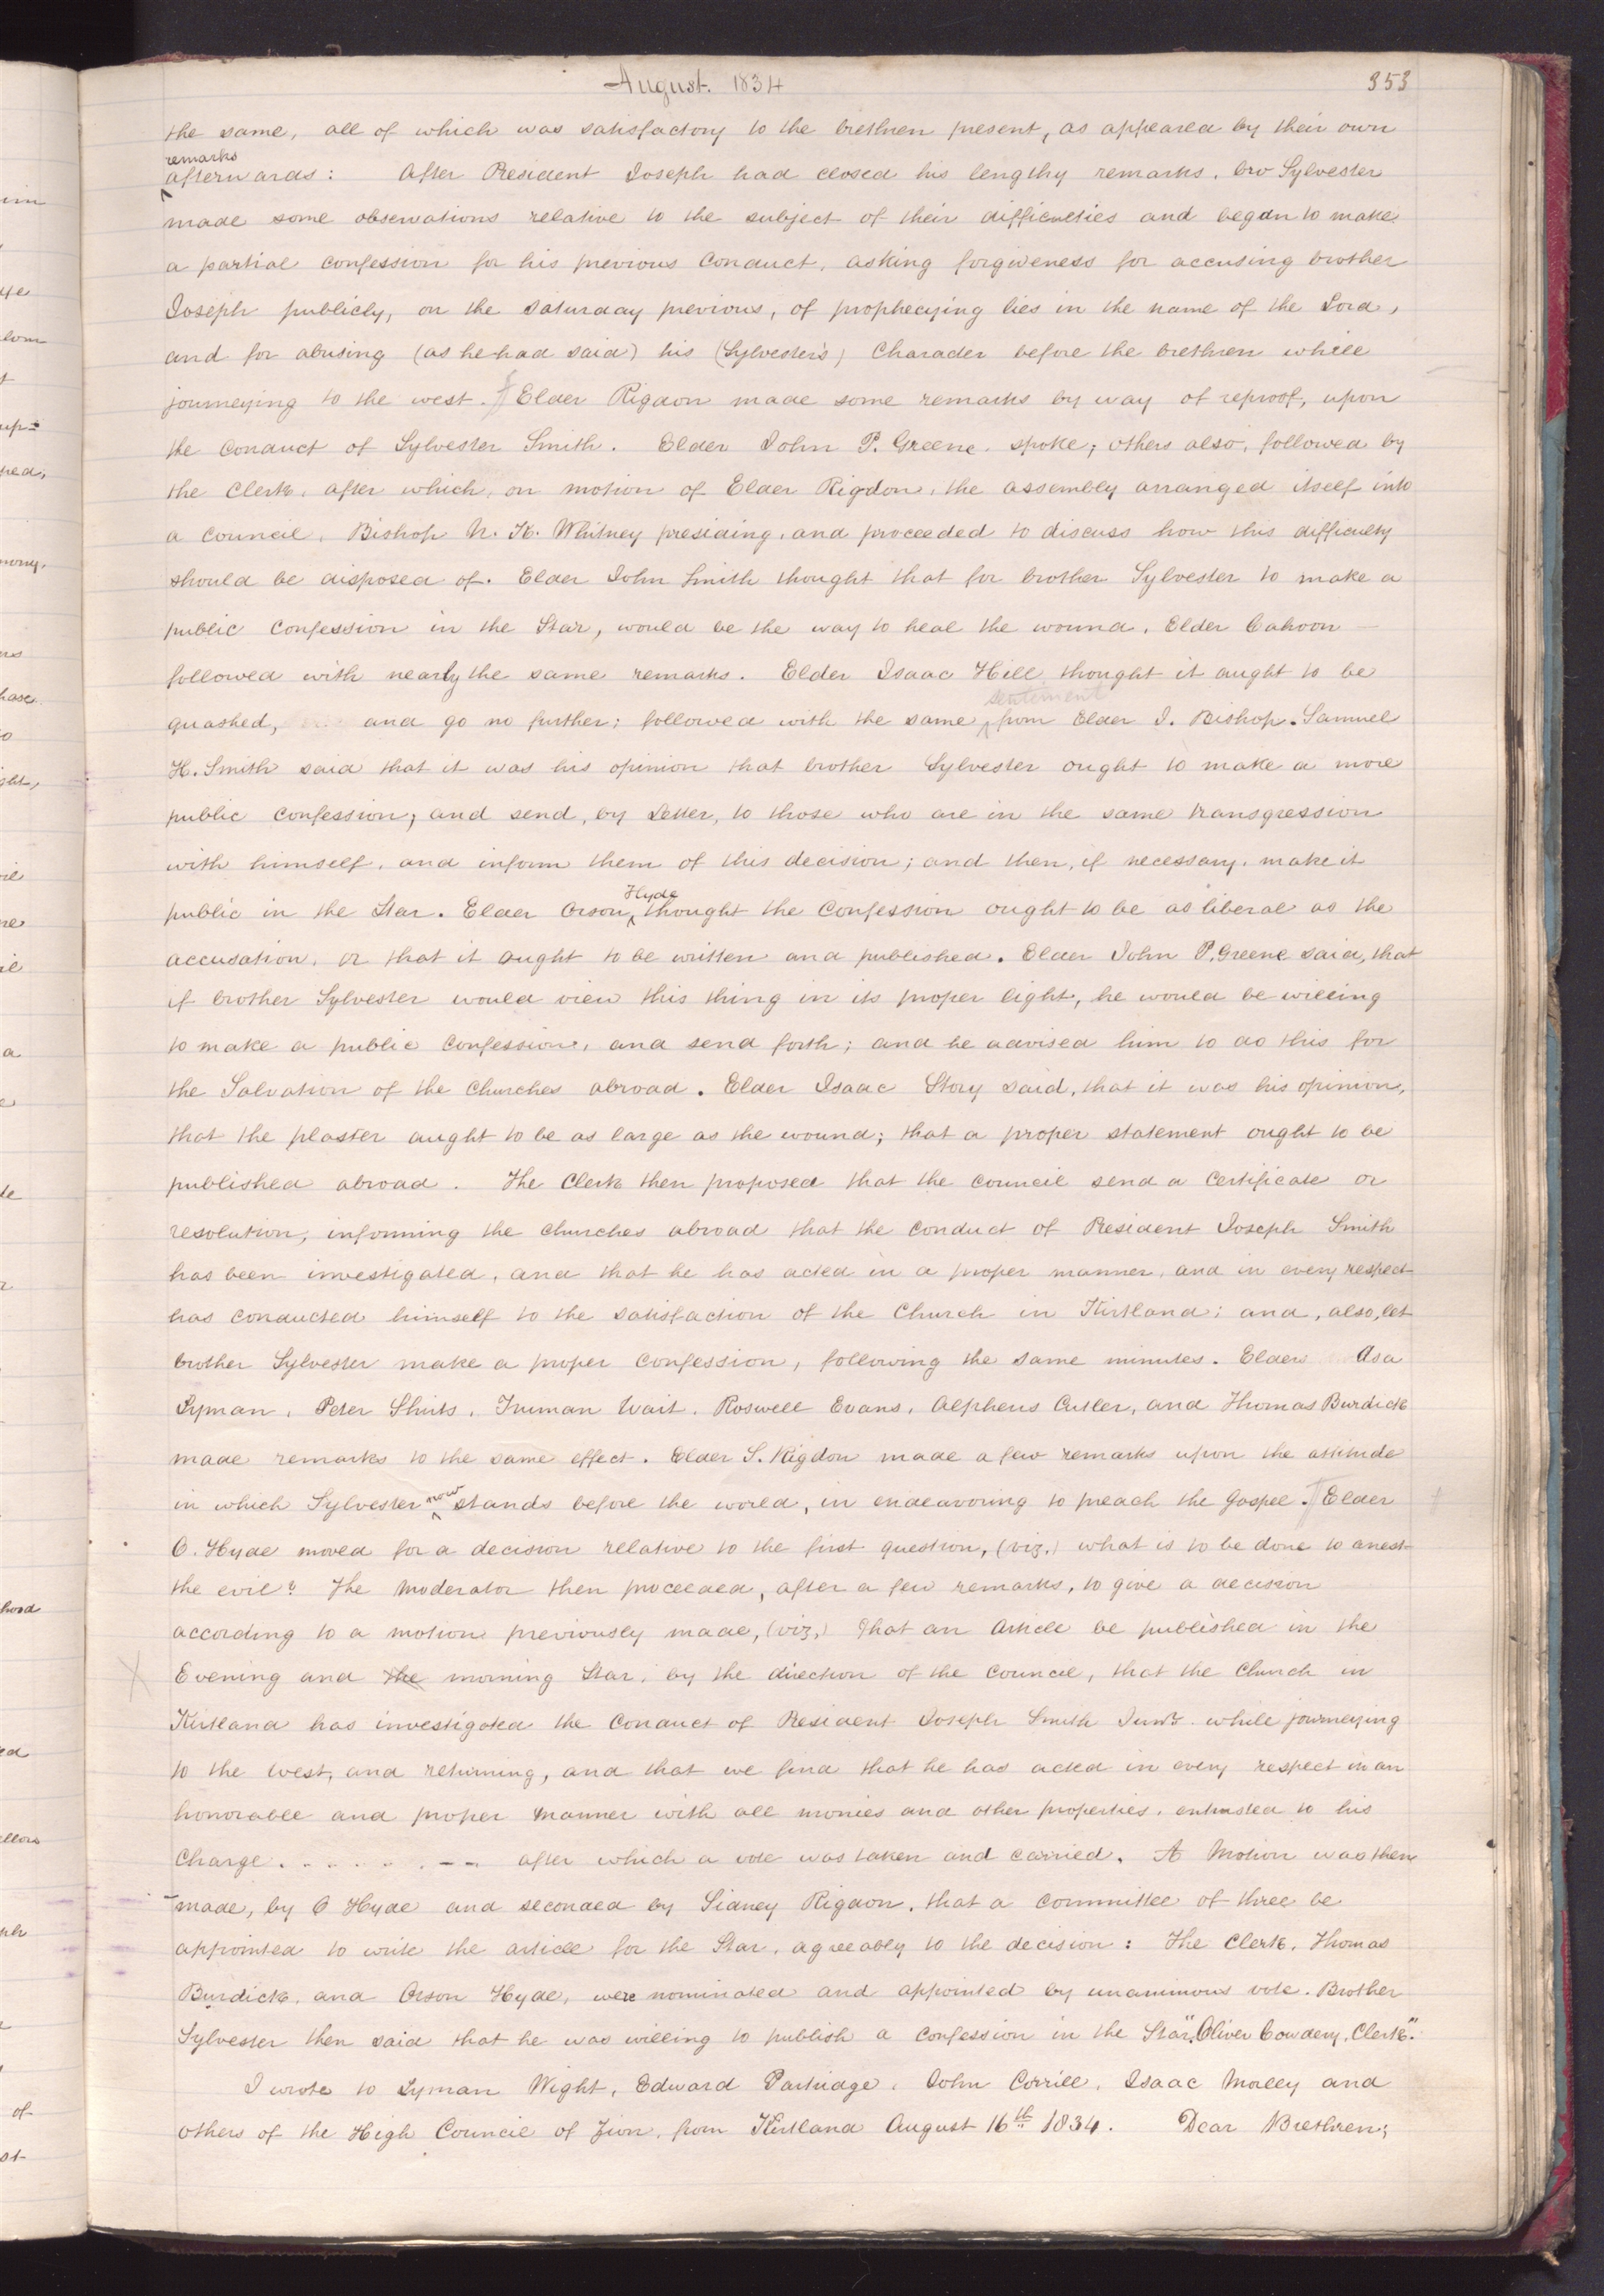 August. 1834
353
the same, all of which was satisfactory to the brethren present, as appeared by their own
remarks
afterwards: After President Joseph had closed his lengthy remarks, bro Sylvester
made some observations relative to the subject of their difficulties and began to make
a partial confession for his previous Conduct, asking forgiveness for accusing brother
Joseph publicly, on the Saturday previous, of prophecying lies in the name of the Lord,
and for abusing (as he had said) his (Sylvester's) Character before the brethren while
journeying to the west. ¶ Elder Rigdon made some remarks by way of reproof, upon
the Conduct of Sylvester Smith. Elder John P. Greene, spoke; others also, followed by
the Clerk, after which, on motion of Elder Rigdon, the assembly arranged itself into
a Council, Bishop N. K. Whitney presiding, and proceeded to discuss how this difficulty
should be disposed of. Elder John Smith thought that for brother Sylvester to make a
public Confession in the Star, would be the way to heal the wound, Elder Cahoon
followed with nearly the same remarks. Elder Isaac Hill thought it aught to be
sentiment
quashed, and go no further; followed with the same ^ from Elder I. Bishop. Samuel
H. Smith said that it was his opinion that brother Sylvester ought to make a more
public Confession; and send, by Letter, to those who are in the same transgression
with himself, and inform them of this decision; and then, if necessary, make it
Hyde
public in the Star. Elder Orson ^ thought the Confession ought to be as liberal as the
accusation, or that it ought to be written and published. Elder John P. Greene said, that
if brother Sylvester would view this thing in its proper light, he would be willing
to make a public Confession, and send forth; and he advised him to do this for
the Salvation of the Churches abroad. Elder Isaac Story said, that it was his opinion,
that the plaster aught to be as large as the wound; that a proper statement ought to be
published abroad. The Clerk then proposed that the Council send a Certificate or
resolution, informing the churches abroad that the conduct of President Joseph Smith
has been investigated, and that he has acted in a proper manner, and in every respect
has conducted himself to the satisfaction of the Church in Kirtland; and, also, let
brother Sylvester make a proper Confession, following the same minutes. Elders Asa
Lyman, Peter Shirts, Truman Wait, Roswell Evans, Alpheus Cutler, and Thomas Burdick
made remarks to the same effect. Elder S. Rigdon made a few remarks upon the attitude
in which Sylvester ^ now stands before the world, in endeavoring to preach the Gospel. ¶ Elder
O. Hyde moved for a decision relative to the first question, (viz.) what is to be done to arrest
the evil? The Moderator then proceeded, after a few remarks, to give a decision
according to a motion previously made, (viz,) That an Article be published in the
Evening and the morning Star, by the direction of the Council, that the Church in
Kirtland has investigated the Conduct of President Joseph Smith Junr. while journeying
to the West, and returning, and that we find that he has acted in every respect in an
honorable and proper manner with all monies and other properties, entrusted to his
Charge. . . . . . . - - after which a vote was taken and carried. A Motion was then
made, by O Hyde and seconded by Sidney Rigdon, that a Committee of three be
appointed to write the article for the Star, agreeably to the decision: The Clerk, Thomas
Burdick, and Orson Hyde, were nominated and appointed by unanimous vote. Brother
Sylvester then said that he was willing to publish a confession in the Star". Oliver Cowdery, Clerk."
I wrote to Lyman Wight, Edward Partridge, John Corrill, Isaac Morley and
others of the High Council of Zion, from Kirtland August 16th 1834. Dear Brethren;